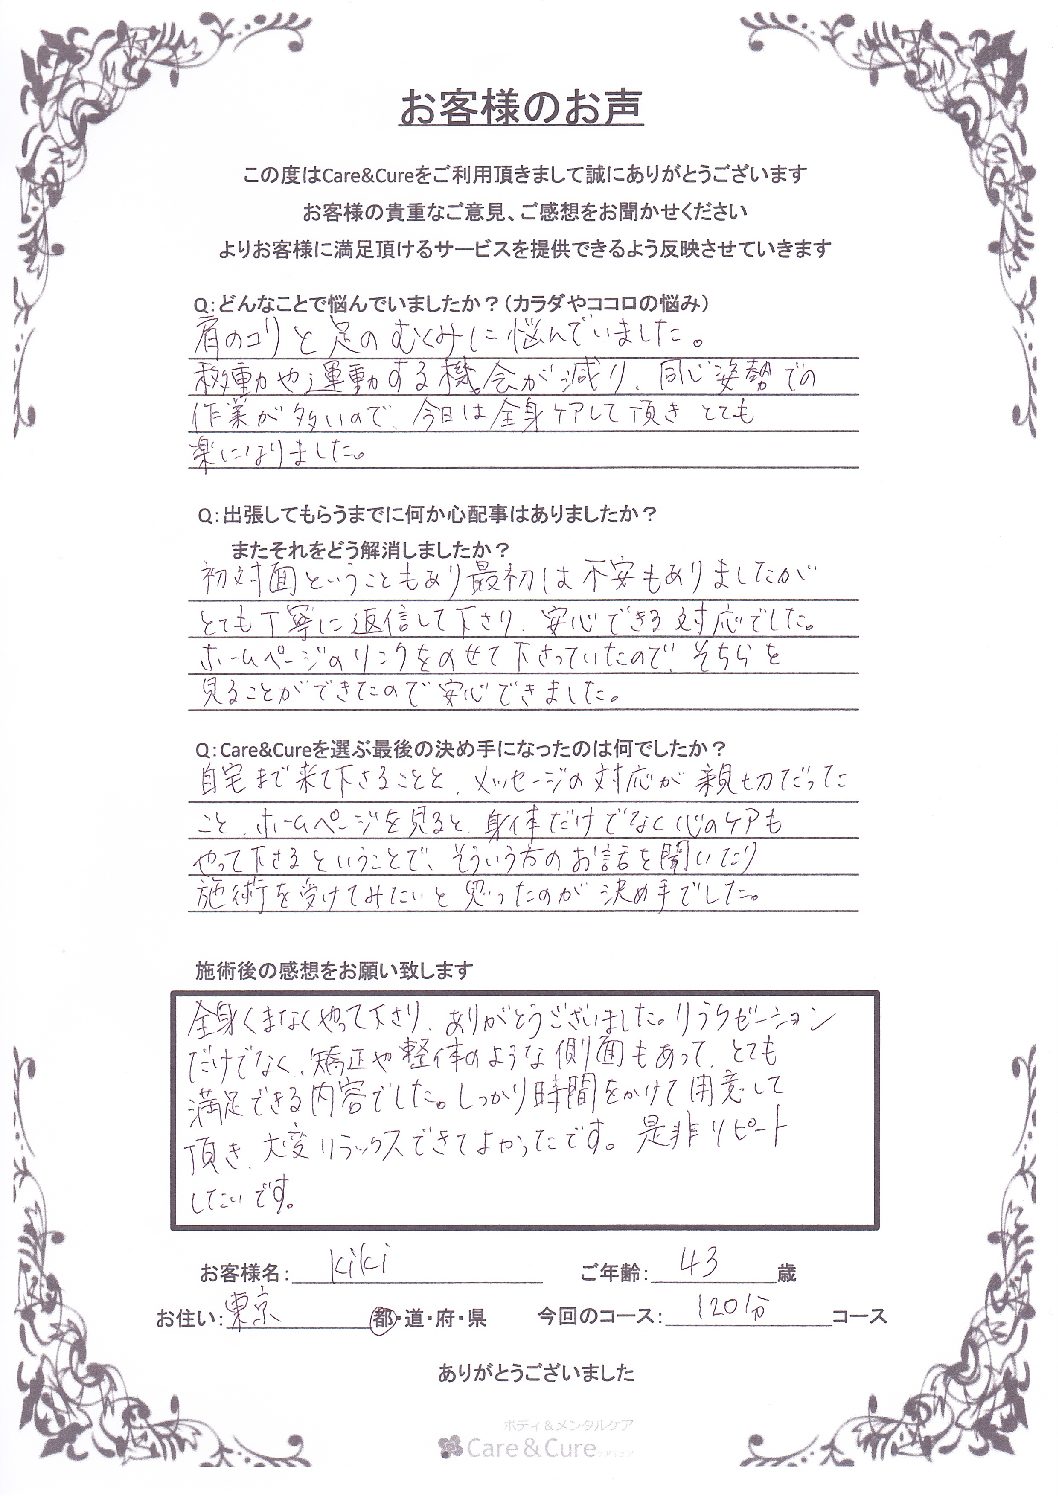 お客様のお声
この度はCare&Cureをご利用頂きまして誠にありがとうございます
お客様の貴重なご意見、ご感想をお聞かせください
よりお客様に満足頂けるサービスを提供できるよう反映させていきます
Q:どんなことで悩んでいましたか？(カラダやココロの悩み)
肩のコリと足のむくみに悩んでいました。
移動や運動する機会が減り、同じ姿勢での
作業が多いので、今日は全身ケアして頂きとても
楽になりました。
Q:出張してもらうまでに何か心配事はありましたか？
またそれをどう解消しましたか？
初対面ということもあり最初は不安もありましたが
とても丁寧に返信して下さり、安心できる対応でした。
ホームページのリンクをのせて下さっていたので、そちらを
見ることができたので安心できました。
Q:Care&Cureを選ぶ最後の決め手になったのは何でしたか？
自宅まで来て下さることと、メッセージの対応が親切だった
こと、ホームページを見ると、身体だけでなく心のケアも
やって下さるということで、そういう方のお話を聞いたり
施術を受けてみたいと思ったのが決め手でした。
施術後の感想をお願い致します
全身くまなくやって下さり、ありがとうございました。リラクゼーション
だけでなく、矯正や整体のような側面もあって、とても
満足できる内容でした。しっかり時間をかけて用意して
頂き、大変リラックスできてよかったです。是非リピート
したいです。
お客様名: kiki ご年齢: 43 歳
お住い: 東京 都・道・府・県 今回のコース: 120分 コース
ありがとうございました
ボディ＆メンタルケア
Care&Cure